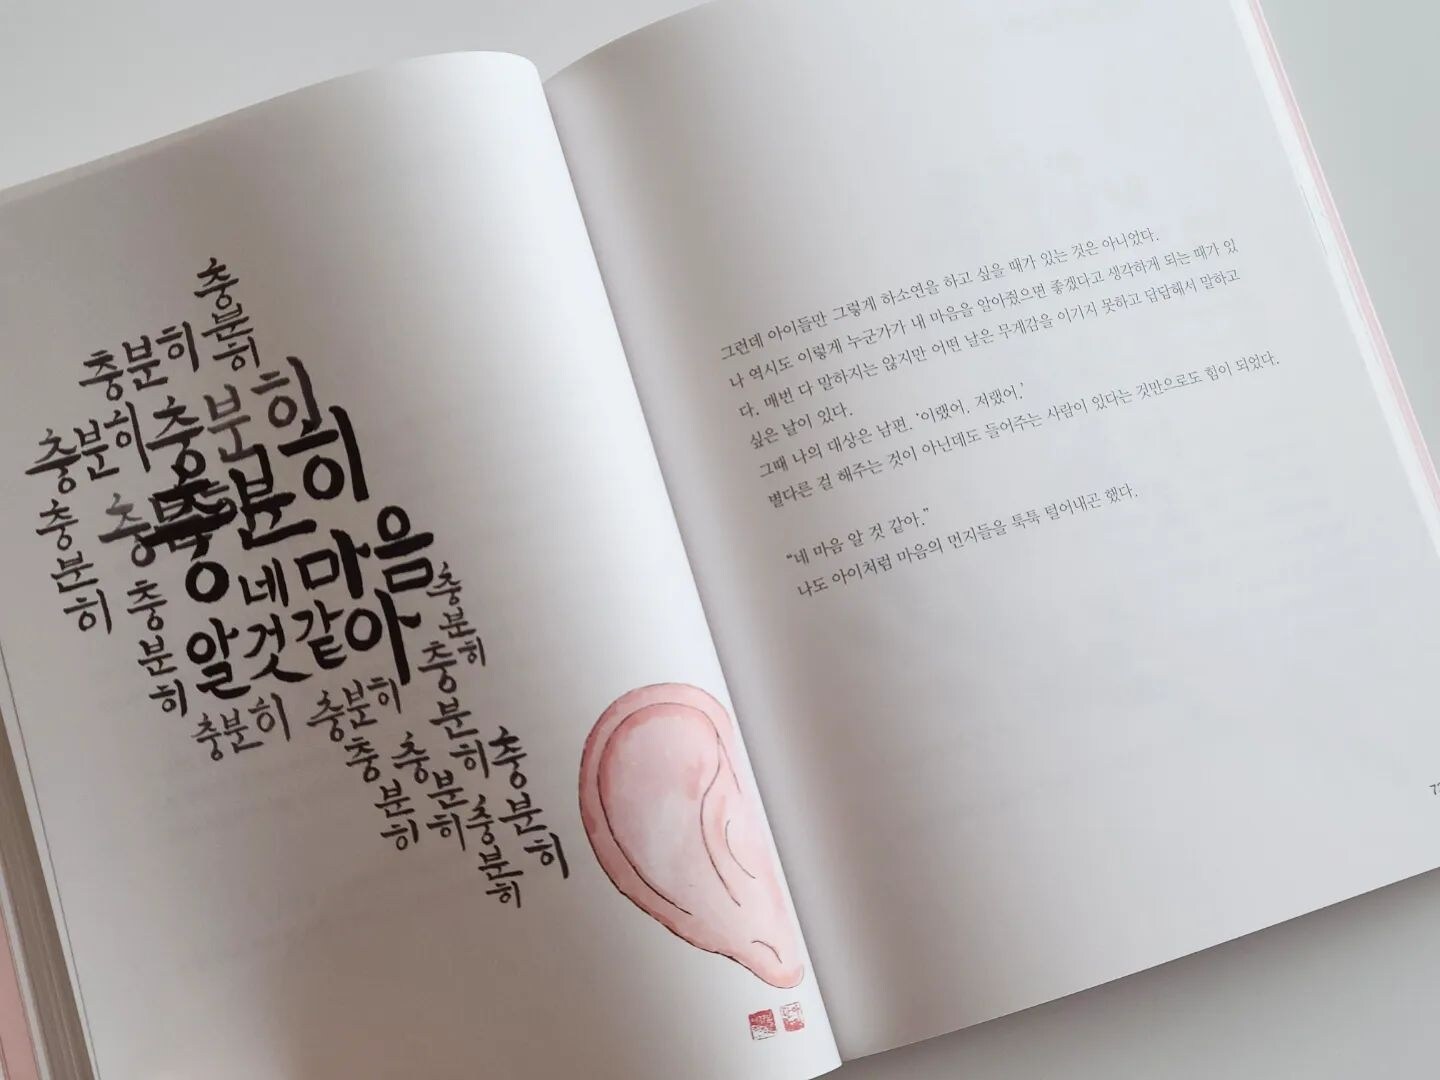 충분히
충분히
충분히
충분히
충분히
충분히
충분히
충분히
충분히
네 마음
알 것 같아
충분히
충분히
충분히
충분히
충분히
충분히
충분히
충분히
그런데 아이들만 그렇게 하소연을 하고 싶을 때가 있는 것은 아니었다.
나 역시도 이렇게 누군가가 내 마음을 알아줬으면 좋겠다고 생각하게 되는 때가 있
다. 매번 다 말하지는 않지만 어떤 날은 무게감을 이기지 못하고 답답해서 말하고
싶은 날이 있다.
그때 나의 대상은 남편. ‘이랬어. 저랬어.’
별다른 걸 해주는 것이 아닌데도 들어주는 사람이 있다는 것만으로도 힘이 되었다.
“네 마음 알 것 같아.”
나도 아이처럼 마음의 먼지들을 툭툭 털어내곤 했다.